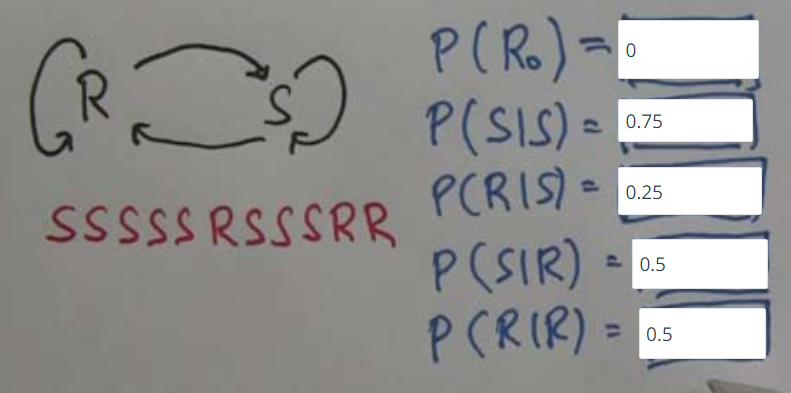 R S
SSSSSRSSSRR
P(R₀) = 0
P(S|S) = 0.75
P(R|S) = 0.25
P(S|R) = 0.5
P(R|R) = 0.5